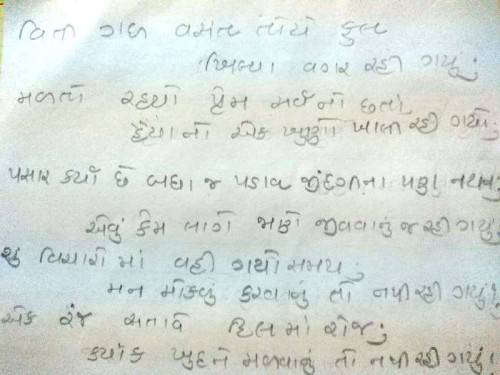 વિતી ગઇ વસંત તોયે ફુલ
ખિલ્યા વગર રહી ગયું!
મળતો રહયો પ્રેમ સર્વ નો છતાં
હૈયા નો એક ખુણો ખાલી રહી ગયો!
પસાર કર્યા છે બધા જ પડાવ જીંદગીના પણ
એવું કેમ લાગે જાણે જીવવાનું જ રહી ગયું!
શું વિચારો માં વહી ગયો સમય!
મન મોકળું કરવાનું તો નથી રહી ગયું!
એક રંજ સતાવે દિલ માં રોજ!
ક્યાંક ખુદને મળવાનું તો નથી રહી ગયું!